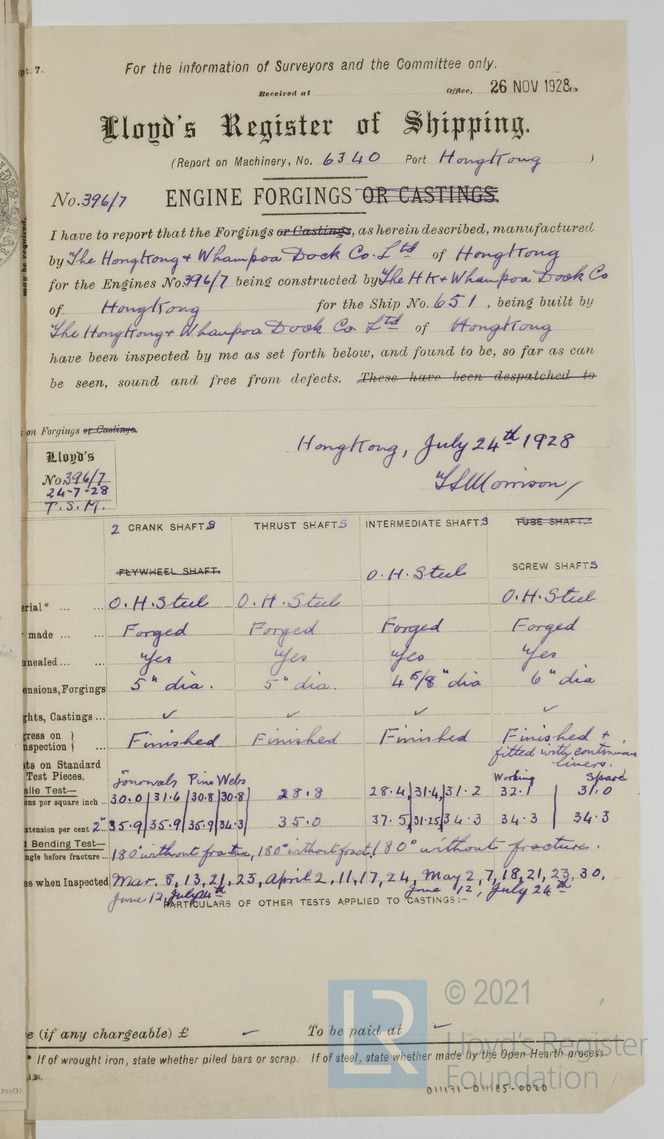 pt. 7.
For the information of Surveyors and the Committee only.
Received at Office, 26 NOV 1928
Lloyd's Register of Shipping.
(Report on Machinery, No. 6340 Port HongKong )
No. 396/7 ENGINE FORGINGS OR CASTINGS.
I have to report that the Forgings or Castings, as herein described, manufactured
by The HongKong & Whampoa Dock Co. Ltd of HongKong
for the Engines No 396/7 being constructed by The HK & Whampoa Dock Co
of HongKong for the Ship No. 651, being built by
The HongKong & Whampoa Dock Co Ltd of HongKong
have been inspected by me as set forth below, and found to be, so far as can
be seen, sound and free from defects. These have been despatched to
may be required.
on Forgings or Castings.
HongKong, July 24th 1928
Lloyd's
No 396/7
24-7-28
T.S.M.
TSMorrison
2 CRANK SHAFTS THRUST SHAFTS INTERMEDIATE SHAFTS TUBE SHAFT.
FLYWHEEL SHAFT. SCREW SHAFTS
erial* ... ... O.H.Steel O.H.Steel O.H.Steel O.H.Steel
made ... ... Forged Forged Forged Forged
nnealed... ... Yes Yes Yes Yes
ensions, Forgings 5" dia. 5" dia. 4 5/8" dia 6" dia
ghts, Castings ... ✓ ✓ ✓ ✓
gress on
nspection } ... Finished Finished Finished Finished + fitted with continuous liners.
ts on Standard
Test Pieces. Journals Pins Webs Working Spare
sile Test—
ons per square inch ... 30.0 31.6 30.8 30.8 28.8 28.4 31.4 31.2 32.1 31.0
xtension per cent 2" 35.9 35.9 35.9 34.3 35.0 37.5 31.25 34.3 34.3 34.3
d Bending Test—
ngle before fracture... 180° without fracture, 180° without fract, 180° without fracture.
es when Inspected Mar. 8, 13, 21, 23, April 2, 11, 17, 24, May 2, 7, 18, 21, 23, 30,
June 12, July 24th June 12, July 24th
PARTICULARS OF OTHER TESTS APPLIED TO CASTINGS:—
e (if any chargeable) £ – To be paid at –
* If of wrought iron, state whether piled bars or scrap. If of steel, state whether made by the Open Hearth process.
LR
© 2021
Lloyd's Register
Foundation
011171-011185-0020